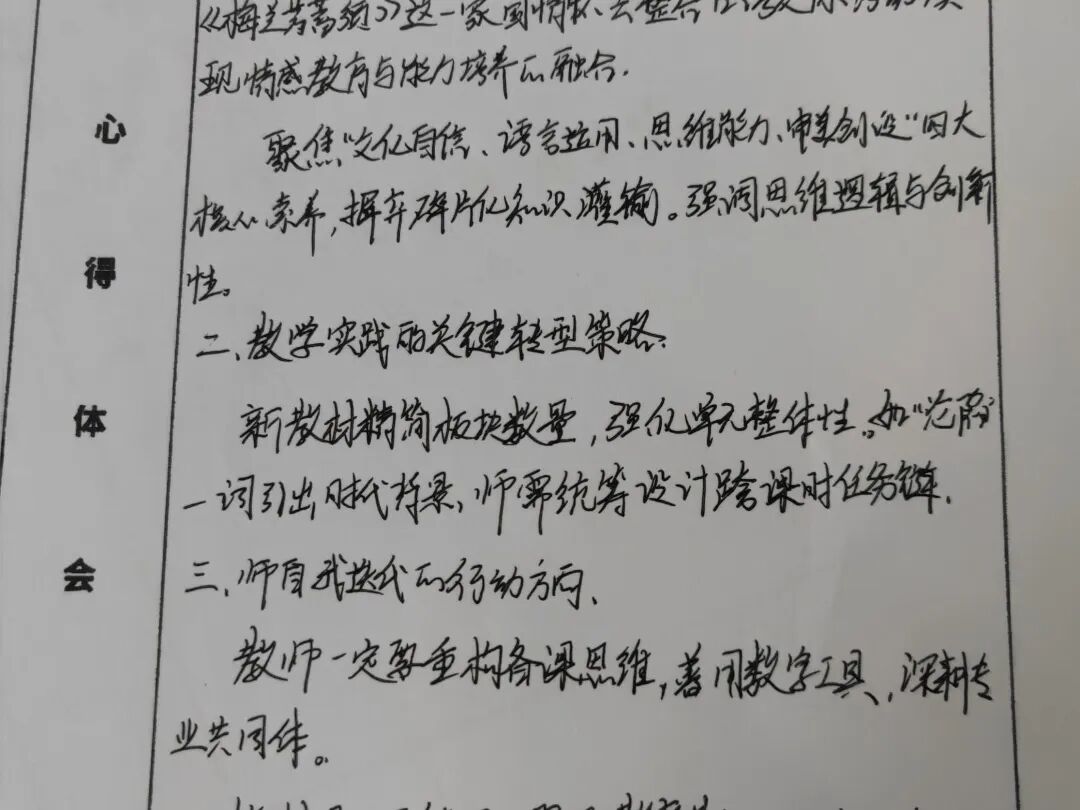 心得体会
《梅兰芳蓄须》这一家国情怀
现情感教育与能力培养的融合.
聚焦“文化自信、语言运用、思维能力、审美创设”四大
核心素养,摒弃碎片化知识灌输。强调思维逻辑与创新
性。
二、教学实践的关键转型策略.
新教材精简板块数量,强化单元整体性。如“沦陷”
一词引出时代背景,师需统筹设计跨课时任务链.
三、师自我迭代的行动方向、
教师一定要重构备课思维,善用数字工具,深耕专
业共同体。